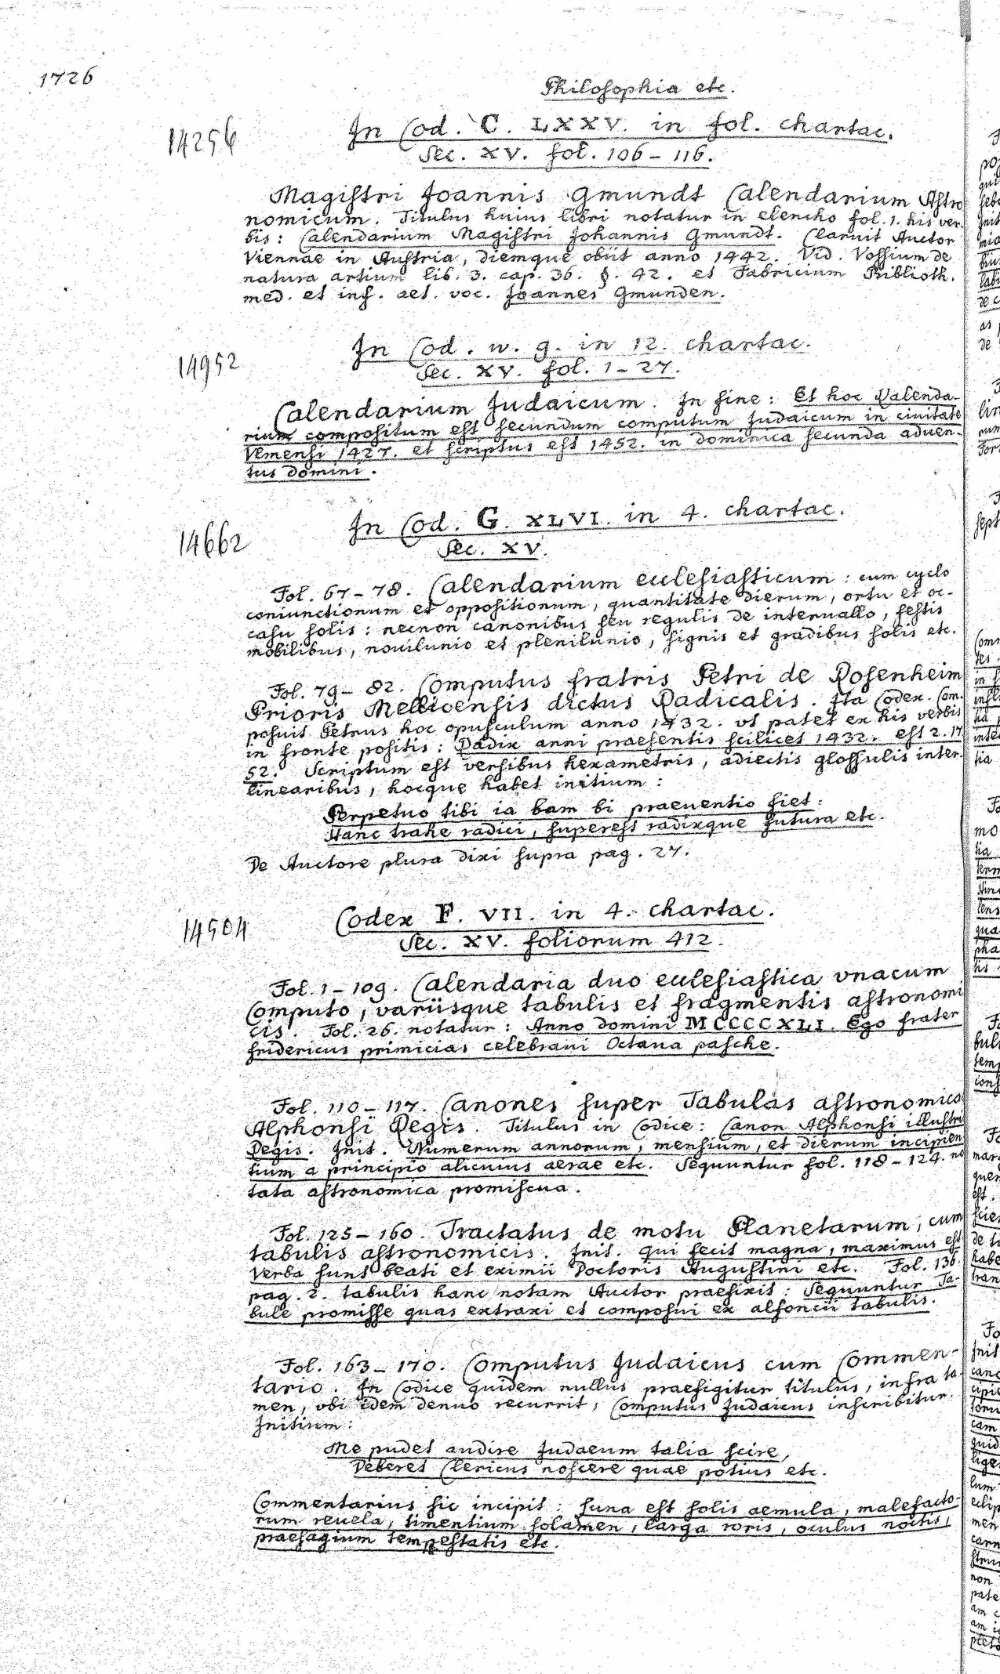 1726
Philosophia etc.
14256
In Cod. C. LXXV. in fol. chartac.
Sec. XV. fol. 106–116.
Magistri Joannis Gmundt Calendarium Astro
nomicum. Titulus huius libri notatur in elencho fol. 1. his ver
bis: Calendarium Magistri Johannis Gmundt. Claruit Auctor
Viennae in Austria, diemque obiit anno 1442. Vid. Vossium de
natura artium lib. 3. cap. 36. §. 42. et Fabricium Biblioth.
med. et inf. aet. voc. Joannes Gmunden.
14952
In Cod. w. g. in 12. chartac.
Sec. XV. fol. 1–27.
Calendarium Judaicum. In fine: Et hoc Kalenda-
rium compositum est secundum computum Judaicum in civitate
Vemensi 1427. et scriptus est 1452. in dominica secunda adven-
tus domini.
14662
In Cod. G. XLVI. in 4. chartac.
Sec. XV.
Fol. 67–78. Calendarium ecclesiasticum: cum cyclo
coniunctionum et oppositionum, quantitate dierum, ortu et oc-
casu solis: necnon canonibus seu regulis de interuallo, festis
mobilibus, nouilunio et plenilunio, signis et gradibus solis etc.
Fol. 79–82. Computus fratris Petri de Rosenheim
Prioris Mellicensis dictus Radicalis. Ita Codex. Com-
posuit Petrus hoc opusculum anno 1432. vt patet ex his verbis
in fronte positis: Radix anni praesentis scilicet 1432. est 2. 17
52. Scriptum est versibus hexametris, adiectis glossulis inter
linearibus, hocque habet initium:
Perpetuo tibi ia bam bi praeuentio fiet:
Hanc trahe radici, superest radixque futura etc.
De Auctore plura dixi supra pag. 27.
14504
Codex F. VII. in 4. chartac.
Sec. XV. foliorum 412.
Fol. 1–109. Calendaria duo ecclesiastica vnacum
Computo, variisque tabulis et fragmentis astronomi
cis. Fol. 26. notatur: Anno domini MCCCCXLI. Ego frater
fridericus primicias celebraui Octaua pasche.
Fol. 110–117. Canones super Tabulas astronomicas
Alphonsi Regis. Titulus in Codice: Canon Alphonsi illustri
Regis. Init. Numerum annorum, mensium, et dierum incipien
tium a principio alicuius aerae etc. Sequuntur fol. 118–124. no
tata astronomica promiscua.
Fol. 125–160. Tractatus de motu Planetarum, cum
tabulis astronomicis. Init. Qui fecit magna, maximus est
Verba sunt beati et eximii Doctoris Augustini etc. Fol. 136.
pag. 2. tabulis hanc notam Auctor praefixit: Sequuntur Ta-
bule promisse quas extraxi et composui ex alfoncii tabulis.
Fol. 163–170. Computus Judaicus cum Commen-
tario. In Codice quidem nullus praefigitur titulus, infra ta
men, vbi idem denuo recurrit, Computus Judaicus inscribitur.
Initium:
Me pudet audire Judaeum talia scire,
Deberet Clericus noscere quae potius etc.
Commentarius sic incipit: Luna est solis aemula, malefacto-
rum reuela, timentium solamen, larga roris, oculus noctis,
praesagium tempestatis etc.